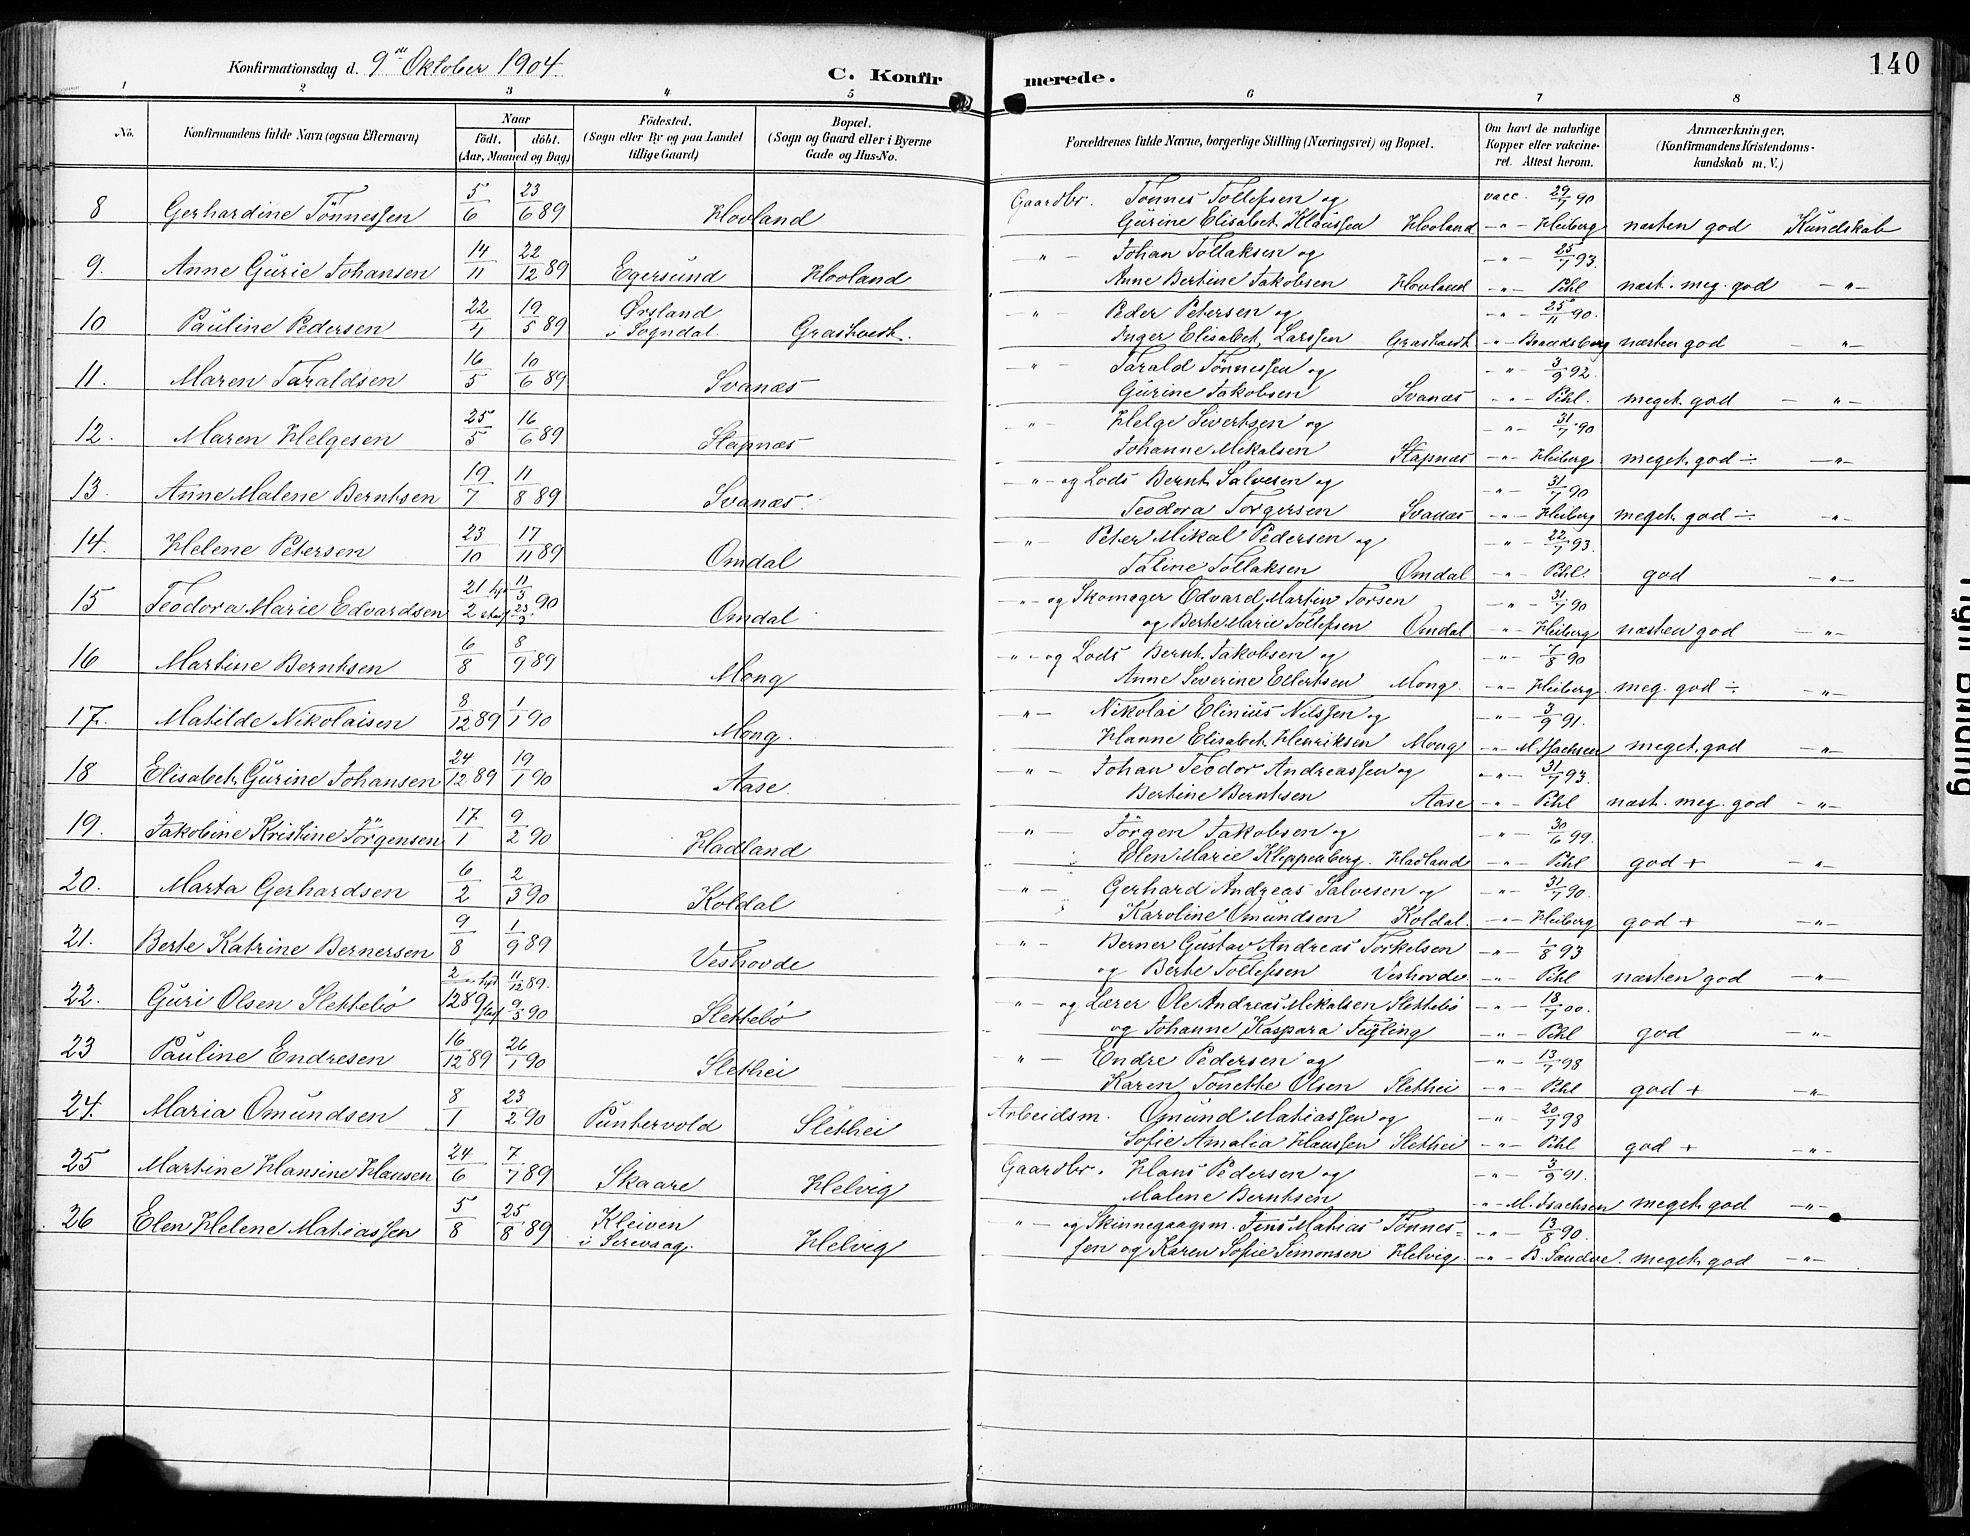 Konfirmationsdag d. 9de Oktober 1904.
C. Konfirmerede.
140
1 2 3 4 5 6 7 8
No.
Konfirmandens fulde Navn (ogsaa Efternavn)
Naar
födt. döbt.
(Aar, Maaned og Dag)
Födested.
(Sogn eller By og paa Landet
tillige Gaard)
Bopæl.
(Sogn og Gaard eller i Byerne
Gade og Hus-No.
Forældrenes fulde Navne, borgerlige Stilling (Næringsvei) og Bopæl.
Om havt de naturlige
Kopper eller vakcine-
ret. Attest herom.
Anmærkninger.
(Konfirmandens Kristendoms-
kundskab m. V.)
8 Gerhardine Tönnessen 5/6 23/6 89 Hovland Gaardbr. Tönnes Tollefsen og vacc. 29/7 90
Gurine Elisabet Klaussen Hovland -"- Heiberg næsten god Kundskab
9. Anne Gurie Johansen 14/11 22/12 89 Egersund Hovland -"- Johan Tollaksen og -"- 25/7 93.
Anne Bertine Jakobsen Hovland -"- Pihl næst. meg. god -"-
10 Pauline Pedersen 22/4 19/5 89 Ørsland i Sogndal Grastveit. -"- Peder Petersen og -"- 25/11 90.
Inger Elisabet Larssen Grastveit -"- Brandsberg næsten god -"-
11. Maren Taraldsen 16/5 10/6 89 Svanæs -"- Tarald Tönnessen og -"- 3/9 92.
Gurine Jakobsen Svanæs -"- Pihl. meget god -"-
12. Maren Helgesen 25/5 16/6 89 Stapnæs -"- Helge Sivertsen og -"- 31/7 90
Johanne Mikalsen Stapnæs -"- Heiberg meget god ÷ -"-
13. Anne Malene Berntsen 19/7 11/8 89 Svanæs. -"- og Lods Bernt Salvesen og -"- 31/7 90
Teodora Torgersen Svanæs -"- Heiberg meget god ÷ -"-
14. Helene Petersen 23/10 17/11 89 Omdal -"- Peter Mikal Pedersen og -"- 22/7 93.
Taline Tollaksen Omdal -"- Pihl. god -"-
15 Teodora Marie Edvardsen 21/2 11/3 23/3 90 Omdal -"- og Skomager Edvard Martin Torsen -"- 31/7 90
og Berte Marie Tollefsen Omdal -"- Heiberg næsten god -"-
16 Martine Berntsen 6/8 8/9 89 Mong -"- og Lods Bernt Jakobsen og -"- 7/8 90
Anne Severine Ellertsen Mong. -"- Heiberg. meg. god ÷ -"-
17. Matilde Nikolaisen 8/12 89 1/1 90 Mong. -"- Nikolai Elinius Nilssen og -"- 3/9 91.
Hanne Elisabet Henriksen Mong -"- M. Isachsen meget god -"-
18 Elisabet Gurine Johansen 24/12 89 19/1 90 Aase. -"- Johan Teodor Andreassen og -"- 31/7 93.
Bertine Berntsen Aase -"- Pihl næst. meg. god -"-
19. Jakobine Kristine Jörgensen 17/1 9/2 90 Hadland -"- Jörgen Jakobsen og -"- 30/6 99.
Elen Marie Kleppenberg. Hadland -"- Pihl god + -"-
20. Marta Gerhardsen 6/2 2/3 90 Koldal -"- Gerhard Andreas Salvesen og -"- 31/7 90.
Karoline Omundsen Koldal. -"- Heiberg god + -"-
21. Berte Katrine Bernersen 9/8 1/9 89 Veshovde -"- Berner Gustav Andreas Torkelsen -"- 1/8 93
og Berte Tollefsen Veshovde -"- Pihl næsten god -"-
22. Guri Olsen Slettebö 2/12 89 11/12 89. 9/3 90 Slettebö -"- og Lærer Ole Andreas Mikalsen Slettebö -"- 18/7 00.
og Johanne Kaspara Fugling -"- Pihl god -"-
23 Pauline Endresen 16/12 89 26/1 90 Slethei -"- Endre Pedersen og -"- 13/7 98
Karen Tonette Olsen Slethei -"- Pihl god + -"-
24. Maria Omundsen 8/1 23/2 90 Puntervold Slethei Arbeidsm. Omund Matiassen og -"- 20/7 98
Sofie Amalia Hanssen Slethei -"- Pihl god + -"-
25 Martine Hansine Hansen 24/6 7/7 89 Skaare Helvig Gaardbr. Hans Pedersen og -"- 3/9 91.
Malene Berntsen -"- M. Isachsen meget god -"-
26 Elen Helene Matiassen 5/8 25/8 89 Kleiven i Sirevaag. Helvig -"- og Skinnegaagsm. Jens Matias Tönnes- -"- 13/8 90.
sen og Karen Sofie Simonsen Helvig. -"- B. Sandve. meget god -"-